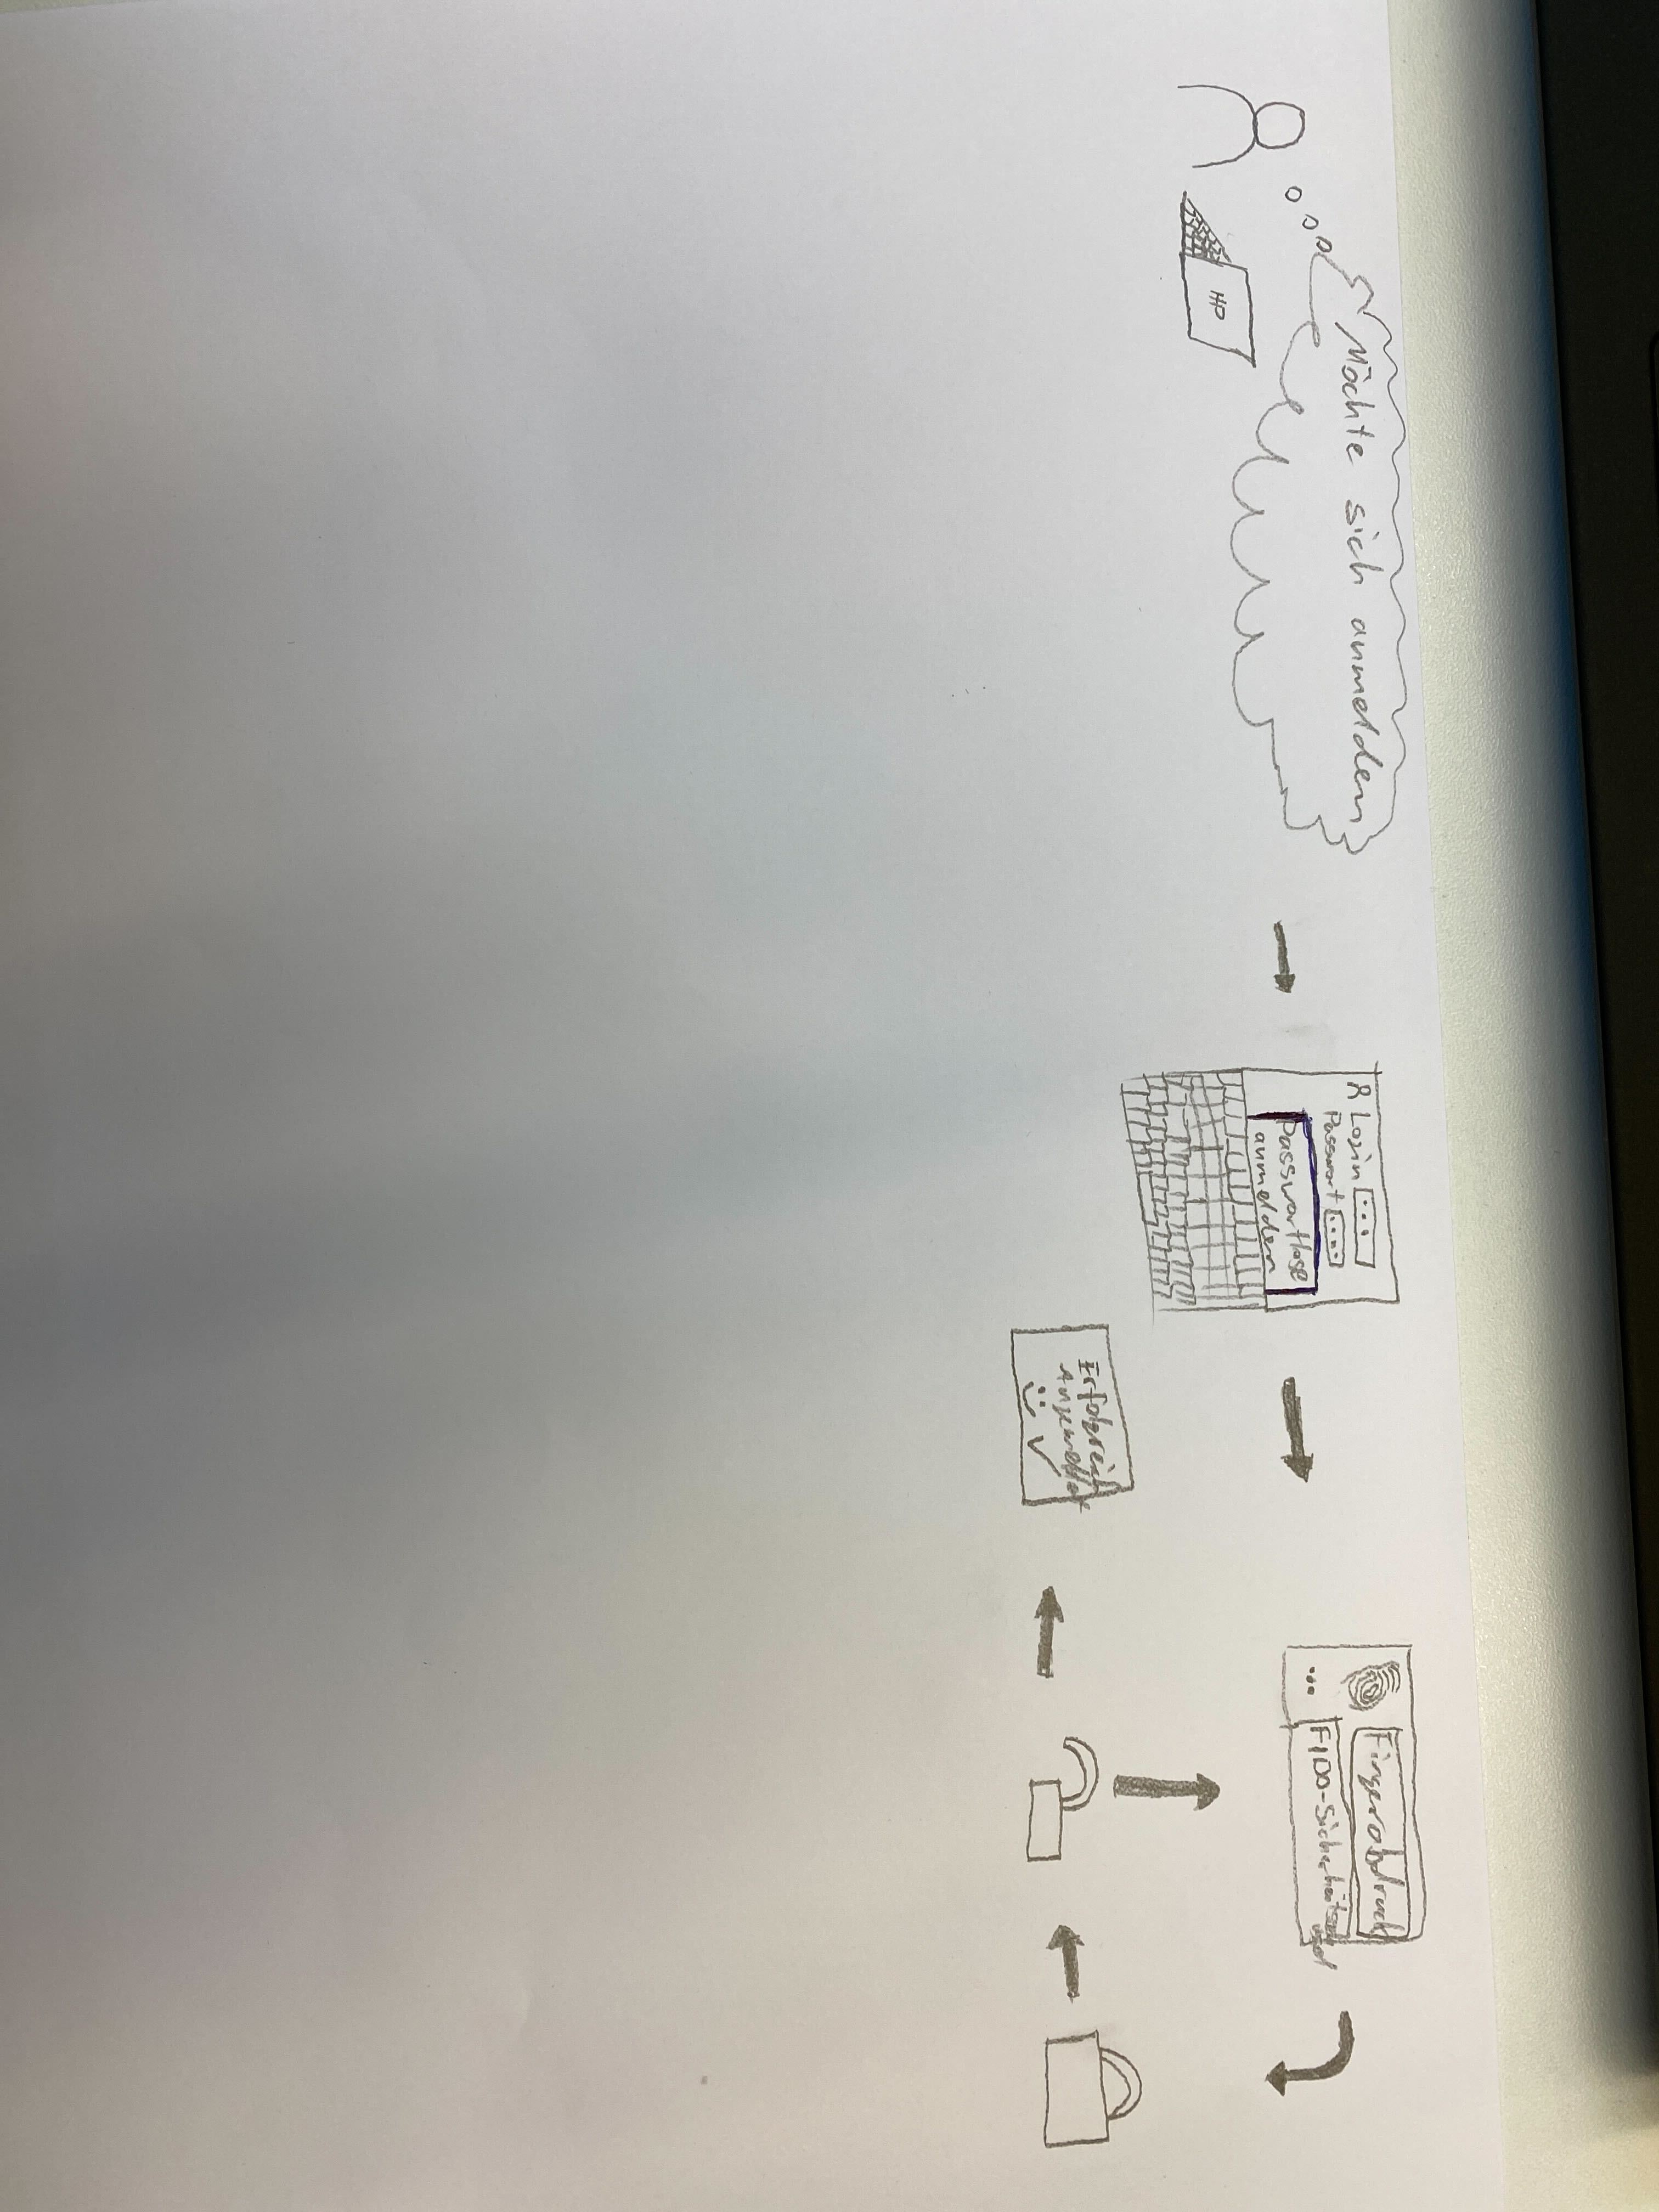 Möchte sich anmelden
HP
Login
Passwort
Passwortlose
anmelden
Fingerabdruck
FIDO-Sicherheits
Erfolgreich
Angemeldet